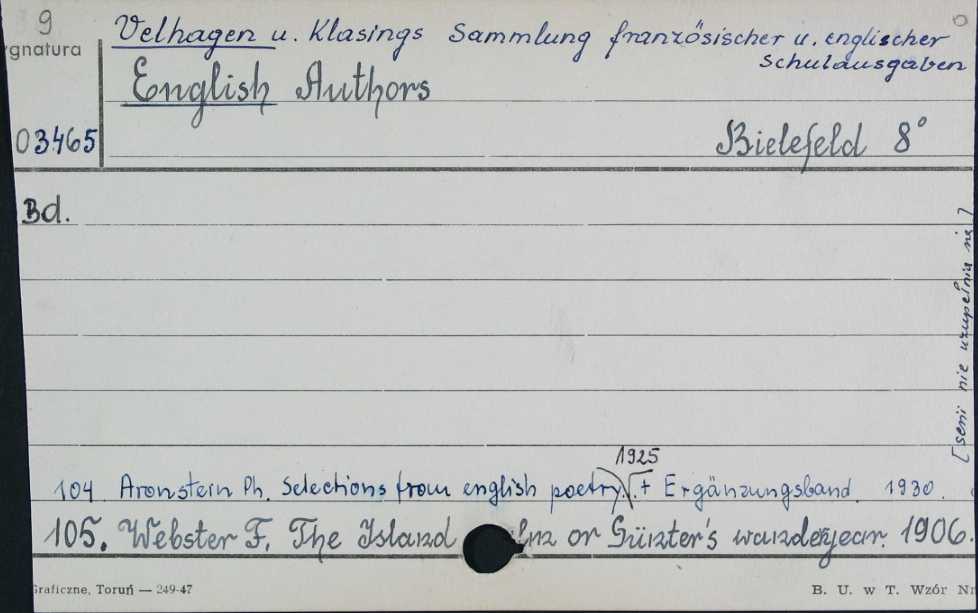 9
Velhagen u. Klasings Sammlung französischer u. englischer
Schulausgaben
gnatura
English Authors
03465
Bielefeld 8°
Bd.
[serii nie uzupełnia się]
1925
104. Aronstein Ph. Selections from english poetry. + Ergänzungsband. 1930.
105. Webster F. The Island or Günter's wanderyear. 1906.
Graficzne, Toruń — 249-47
B. U. w T. Wzór Nr